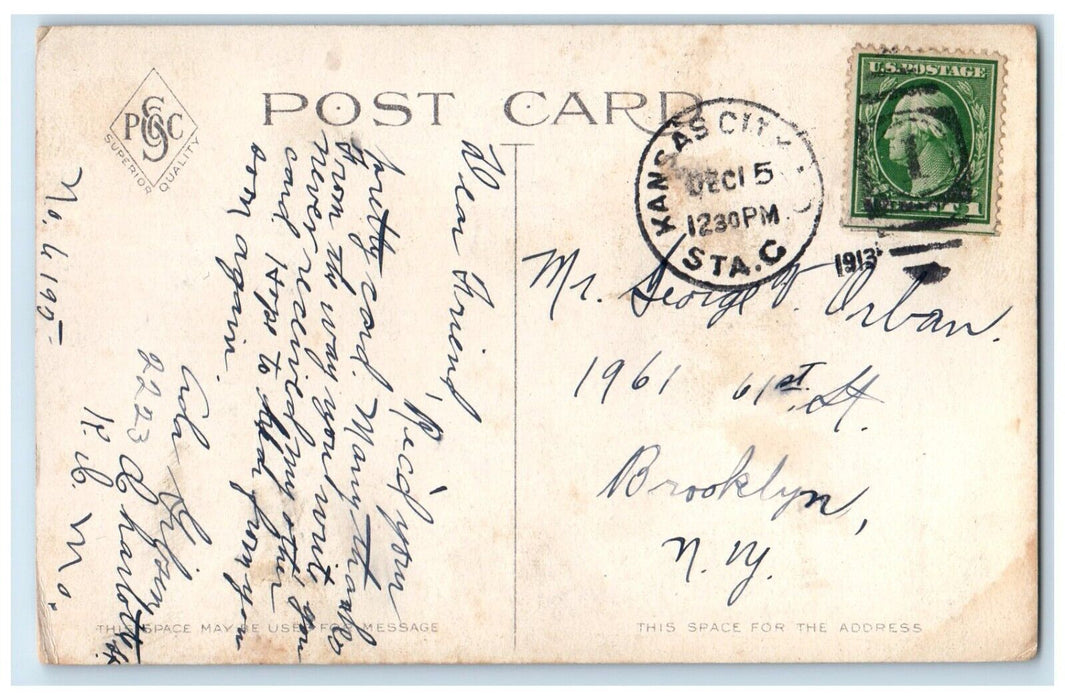 PSGC
SUPERIOR QUALITY
POST CARD
KANSAS CITY
DEC 15
12 30 PM
STA. C
1913
U.S. POSTAGE
1
Mr. George V. Orban.
1961 61st. St.
Brooklyn,
N. Y.
Dear Friend,
Rec'd your
pretty card. Many thanks
From the way you write you
never received my other
card Hope to hear from you
soon again.
Ada
2223 Charlotte St
K. C. Mo.
No. 4195
THIS SPACE MAY BE USED FOR MESSAGE
THIS SPACE FOR THE ADDRESS